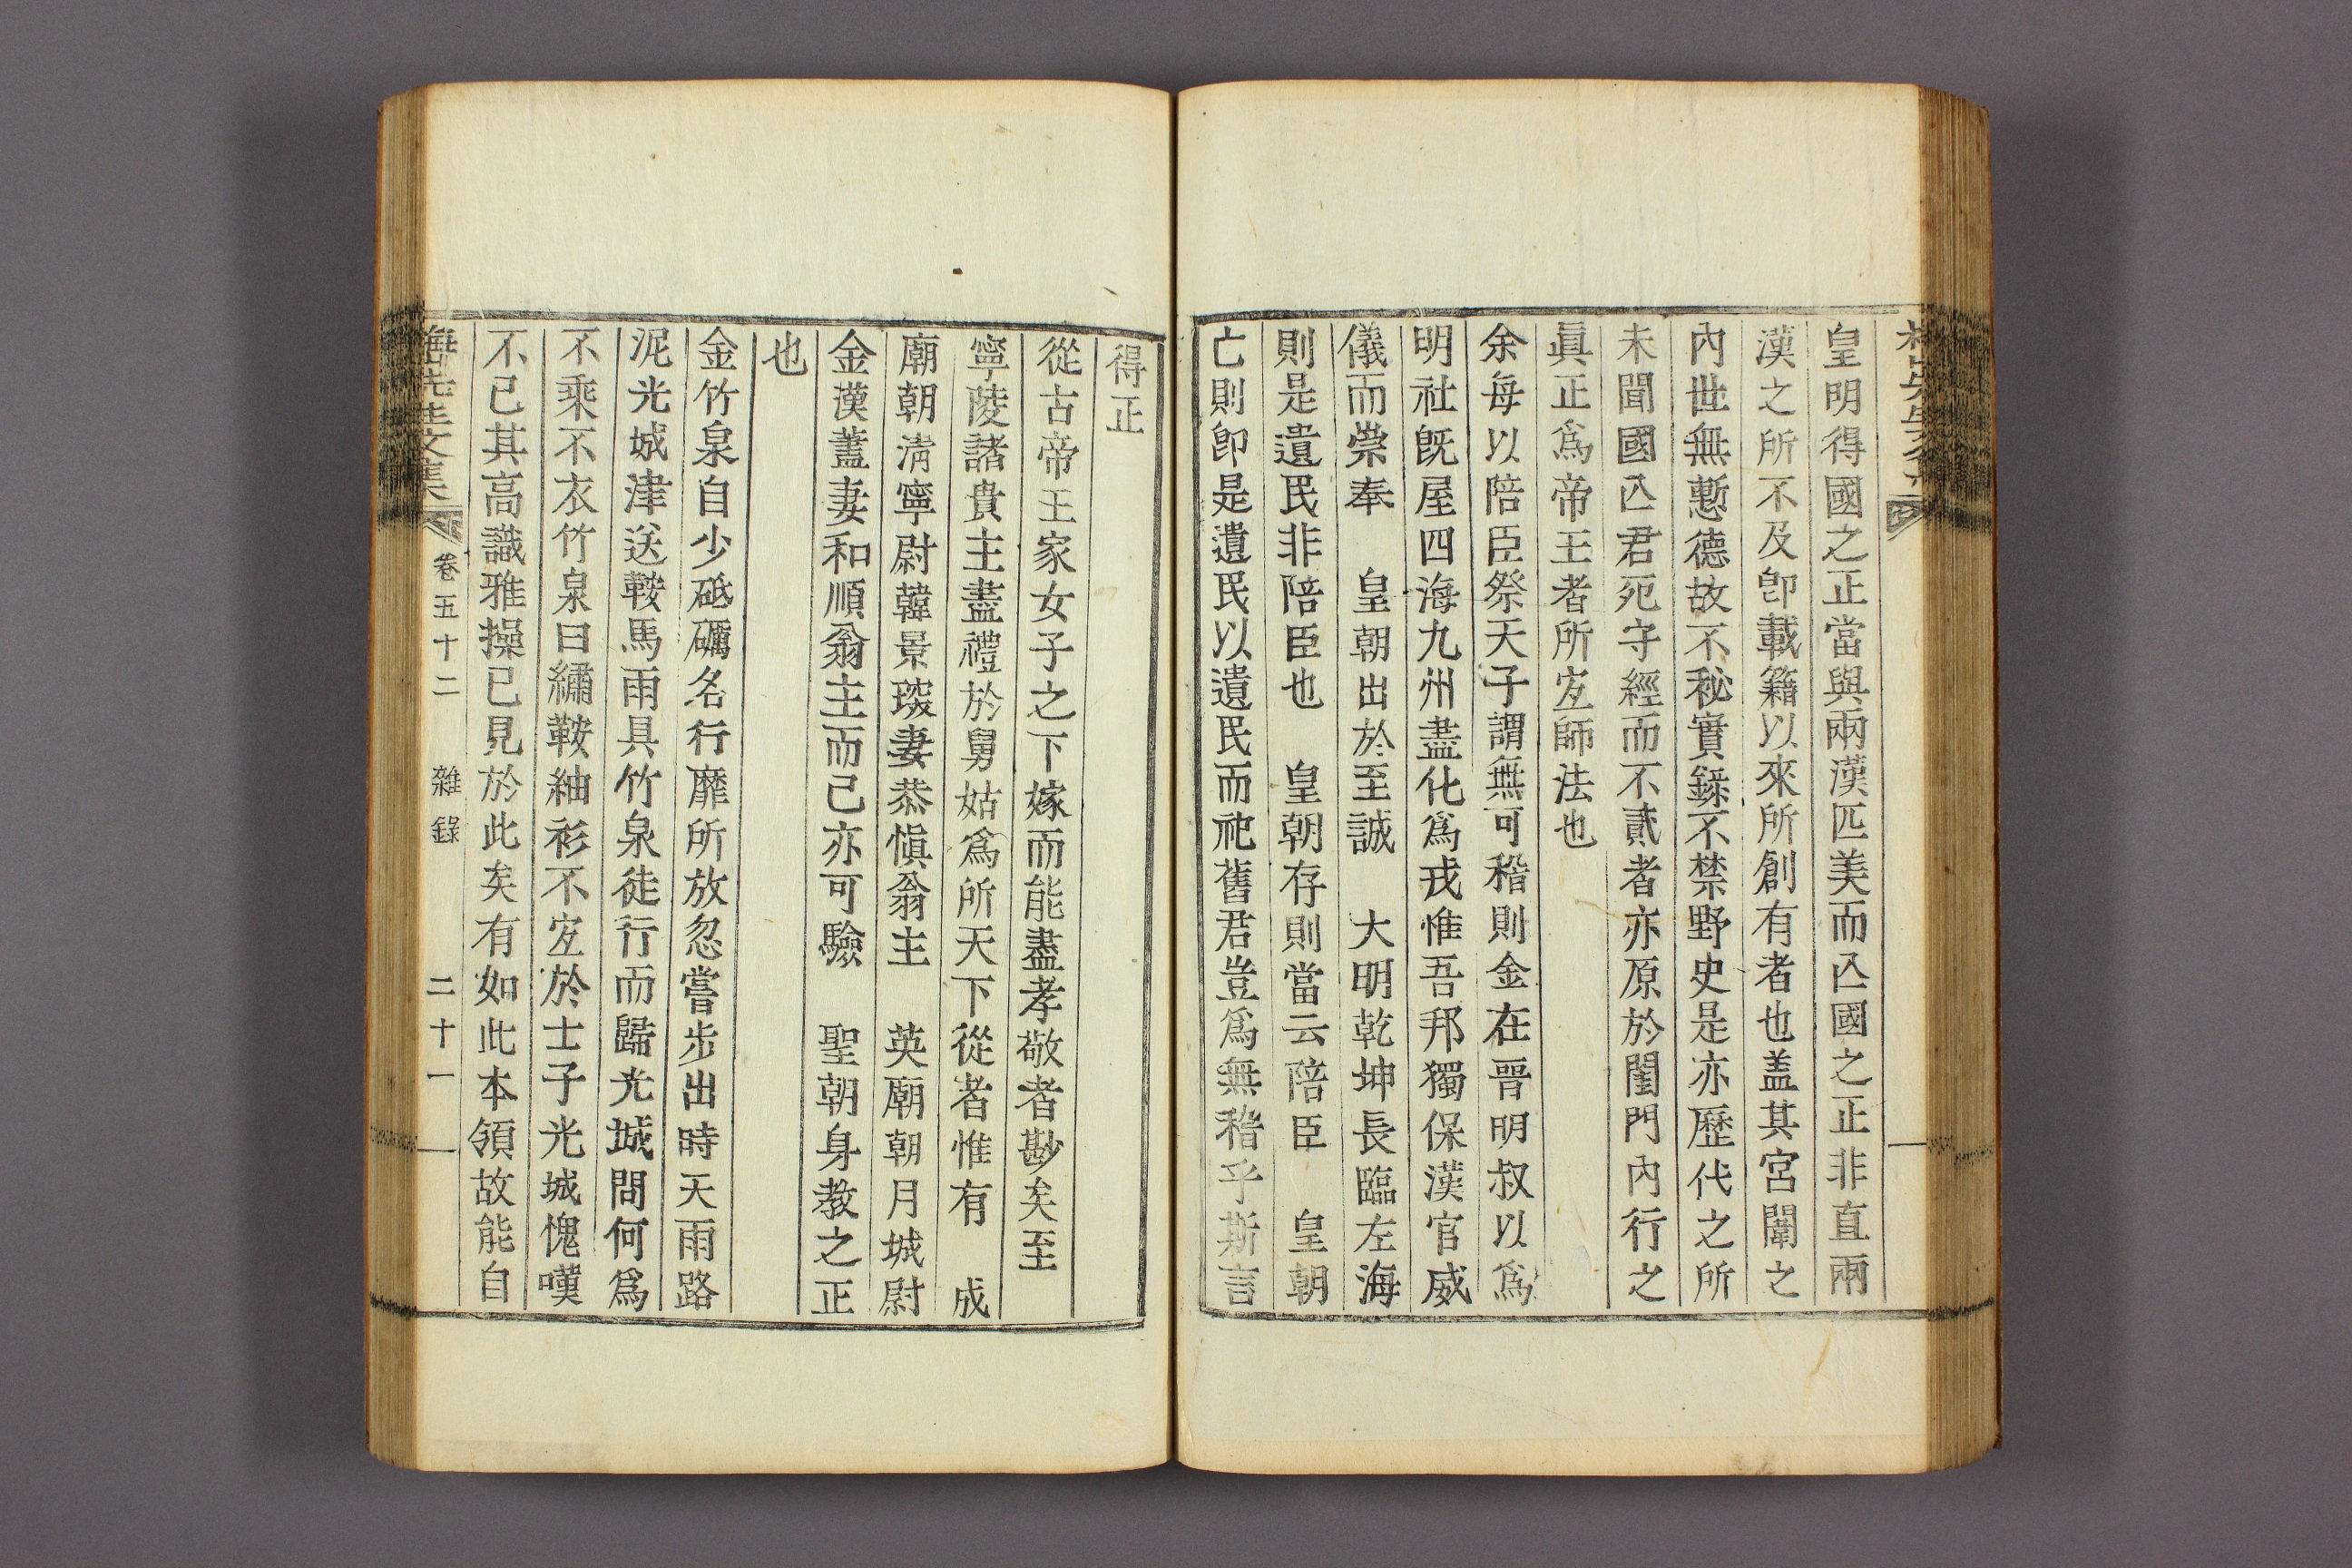 皇明得國之正當與兩漢匹美而亾國之正非直兩
漢之所不及卽載籍以來所創有者也盖其宮闈之
內世無慙德故不秘實錄不禁野史是亦歷代之所
未聞國亾君死守經而不貳者亦原於閨門內行之
眞正爲帝王者所宐師法也
余每以陪臣祭天子謂無可稽則金在晋明叔以爲
明社旣屋四海九州盡化爲戎惟吾邦獨保漢官威
儀而崇奉　皇朝出於至誠　大明乾坤長臨左海
則是遺民非陪臣也　皇朝存則當云陪臣　皇朝
亡則卽是遺民以遺民而祀舊君豈爲無稽乎斯言
得正
從古帝王家女子之下嫁而能盡孝敬者尠矣至
寧陵諸貴主盡禮於舅姑爲所天下從者惟有　成
廟朝淸寧尉韓景琛妻恭愼翁主　英廟朝月城尉
金漢藎妻和順翁主而己亦可驗　聖朝身教之正
也
金竹泉自少砥礪名行靡所放忽嘗步出時天雨路
泥光城津送鞍馬雨具竹泉徒行而歸光城問何爲
不乘不衣竹泉曰繡鞍紬衫不宐於士子光城愧嘆
不已其高識雅操已見於此矣有如此本領故能自
海先生文集　卷五十二　雜錄　二十一